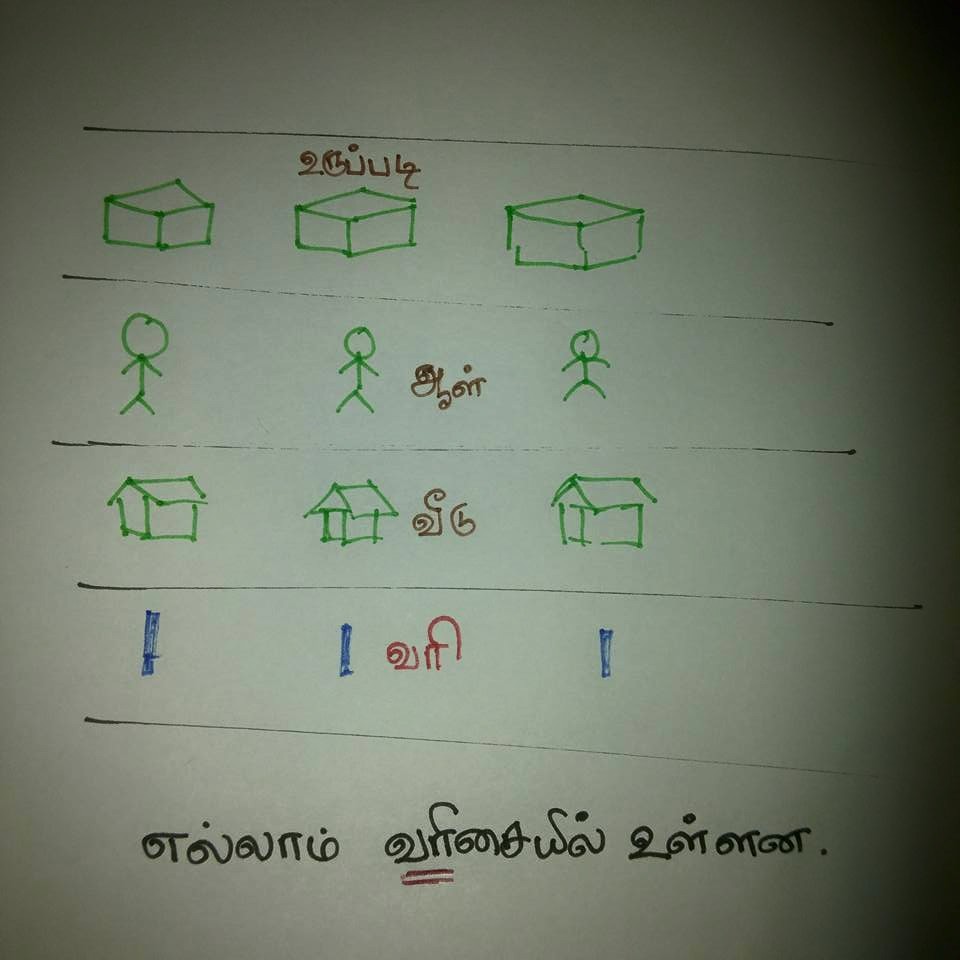 உருப்படி
ஆள்
வீடு
வரி
எல்லாம் வரிசையில் உள்ளன.